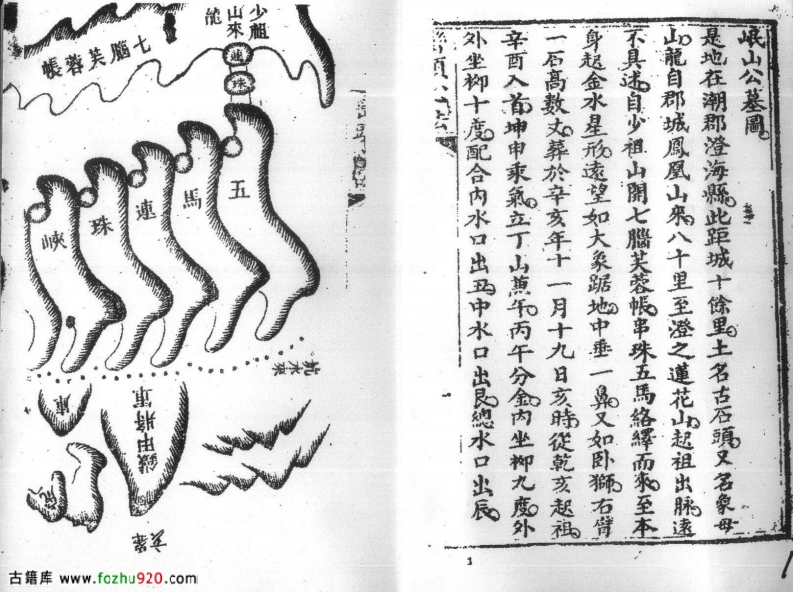 岷山公墓圖
是地在潮郡澄海縣此距城十餘里土名古石頭又名象母
山龍自郡城鳳凰山來八十里至澄之蓮花山起祖出脉遠
不具述自少祖山開七腦芙蓉帳串珠五馬絡繹而來至本
身起金水星形遠望如大象踞地中垂一鼻又如卧獅右臂
一石高數丈葬於辛亥年十一月十九日亥時從乾亥起祖
辛酉入首坤申乘氣立丁山蕉午丙午分金內坐柳九度外
外坐柳十度配合內水口出丑中水口出艮總水口出辰
1
少祖
山來
龍
七腦芙蓉帳
蓮
珠
五
馬
連
珠
峽
鐵甲將軍
古籍库 www.fozhu920.com